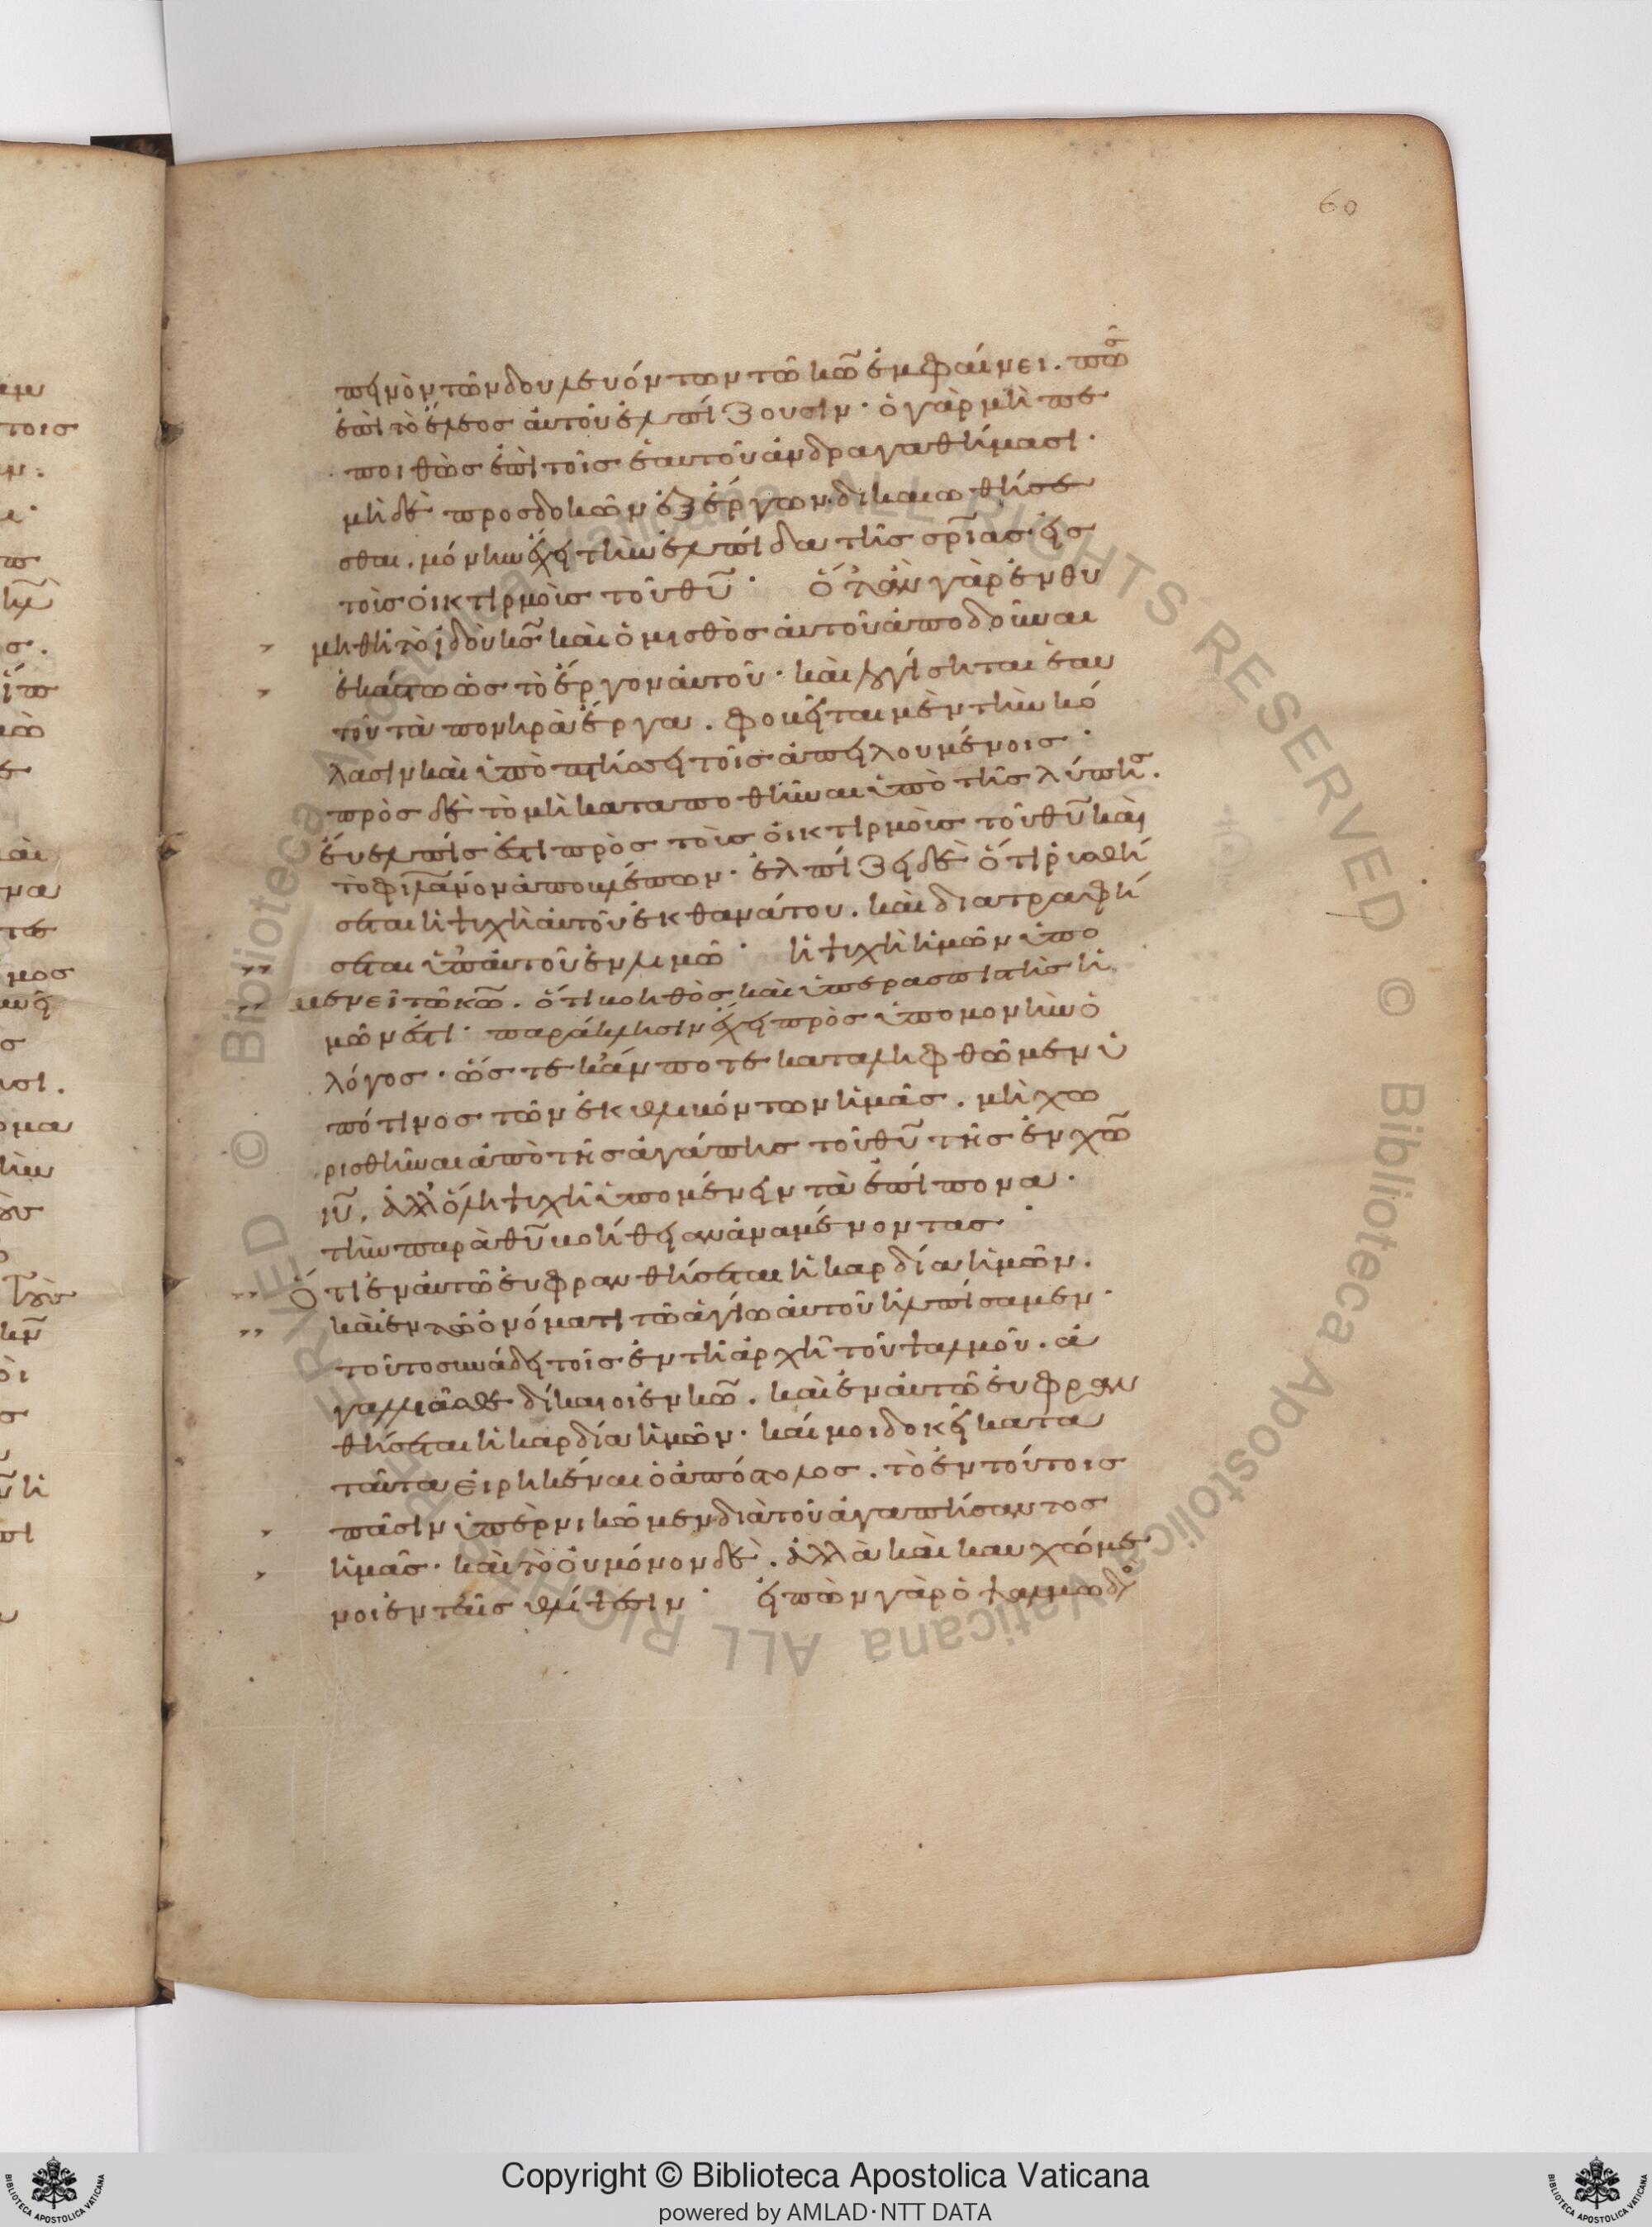 60
πεινὸν τῶν δουλευόντων τῶ κω ἐμφαίνει. πῶς
ἐπὶ τὸ ἔλεος αὐτοῦ ἐλπίζουσιν· ὁ γὰρ μὴ πε
ποιθὼς ἐπὶ τοῖς ἑαυτοῦ ἀνδραγαθήμασι·
μὴ δὲ προσδοκῶν ἐξ ἔργων δικαιωθήσε
σθαι. μόνην ἔχει τὴν ἐλπίδα τῆς σρίας εἰς
τοῖς οἰκτιρμοῖς τοῦ θυ· ὅταν γὰρ ἐνθυ
μηθῆ τὸ ἰδοὺ κς καὶ ὁ μισθὸς αὐτοῦ ἀποδοῦναι
ἑκάστω ὡς τὸ ἔργον αὐτοῦ· καὶ λογίσηται ἑαυ
τοῦ τὰ πονηρὰ ἔργα. φοβεῖται μὲν τὴν κό
λασιν καὶ ὑποπτήσσει τοῖς ἀπειλουμένοις·
πρὸς δὲ τὸ μὴ καταποθῆναι ὑπὸ τῆς λύπης.
εὔελπίς ἐστι πρὸς τοὺς οἰκτιρμοὺς τοῦ θυ καὶ
τὸ φιλανον ἀποβλέπων· ἐλπίζει δὲ ὅτι ῥυσθή
σεται ἡ ψυχὴ αὐτοῦ ἐκ θανάτου. καὶ διατραφή
σεται ὑπ' αὐτοῦ ἐν λιμῶ· ἡ ψυχὴ ἡμῶν ὑπο
μενεῖ τῶ κω. ὅτι βοηθὸς καὶ ὑπερασπιστὴς ἡ
μῶν ἐστι· παράκλησιν ἔχει πρὸς ὑπομονὴν ὁ
λόγος· ὥστε κἄν ποτε καταληφθῶμεν ὑ
πό τινος τῶν ἐκθλιβόντων ἡμᾶς. μὴ χω
ρισθῆναι ἀπὸ τῆς ἀγάπης τοῦ θυ τῆς ἐν χω
ιυ. ἀλλ' ὅλη ψυχῆ ὑπομένειν τὰ ἐπίπονα·
τὴν παρὰ θυ βοήθειαν ἀναμένοντας·
Ὅτι ἐν αὐτῶ εὐφρανθήσεται ἡ καρδία ἡμῶν.
καὶ ἐν τῶ ὀνόματι τῶ ἁγίω αὐτοῦ ἠλπίσαμεν·
τοῦτο συνάδει τοῖς ἐν τῆ ἀρχῆ τοῦ ψαλμοῦ. ἀ
γαλλιᾶσθε δίκαιοι ἐν κω. καὶ ἐν αὐτῶ εὐφραν
θήσεται ἡ καρδία ἡμῶν· καί μοι δοκεῖ κατὰ
ταῦτα εἰρηκέναι ὁ ἀπόστολος. τὸ ἐν τούτοις
πᾶσιν ὑπερνικῶμεν διὰ τοῦ ἀγαπήσαντος
ἡμᾶς· καὶ τὸ οὐ μόνον δὲ. ἀλλὰ καὶ καυχώμε
νοι ἐν ταῖς θλίψεσιν· εἰπὼν γὰρ ὁ ψαλμωδὸς
Copyright © Biblioteca Apostolica Vaticana
powered by AMLAD·NTT DATA